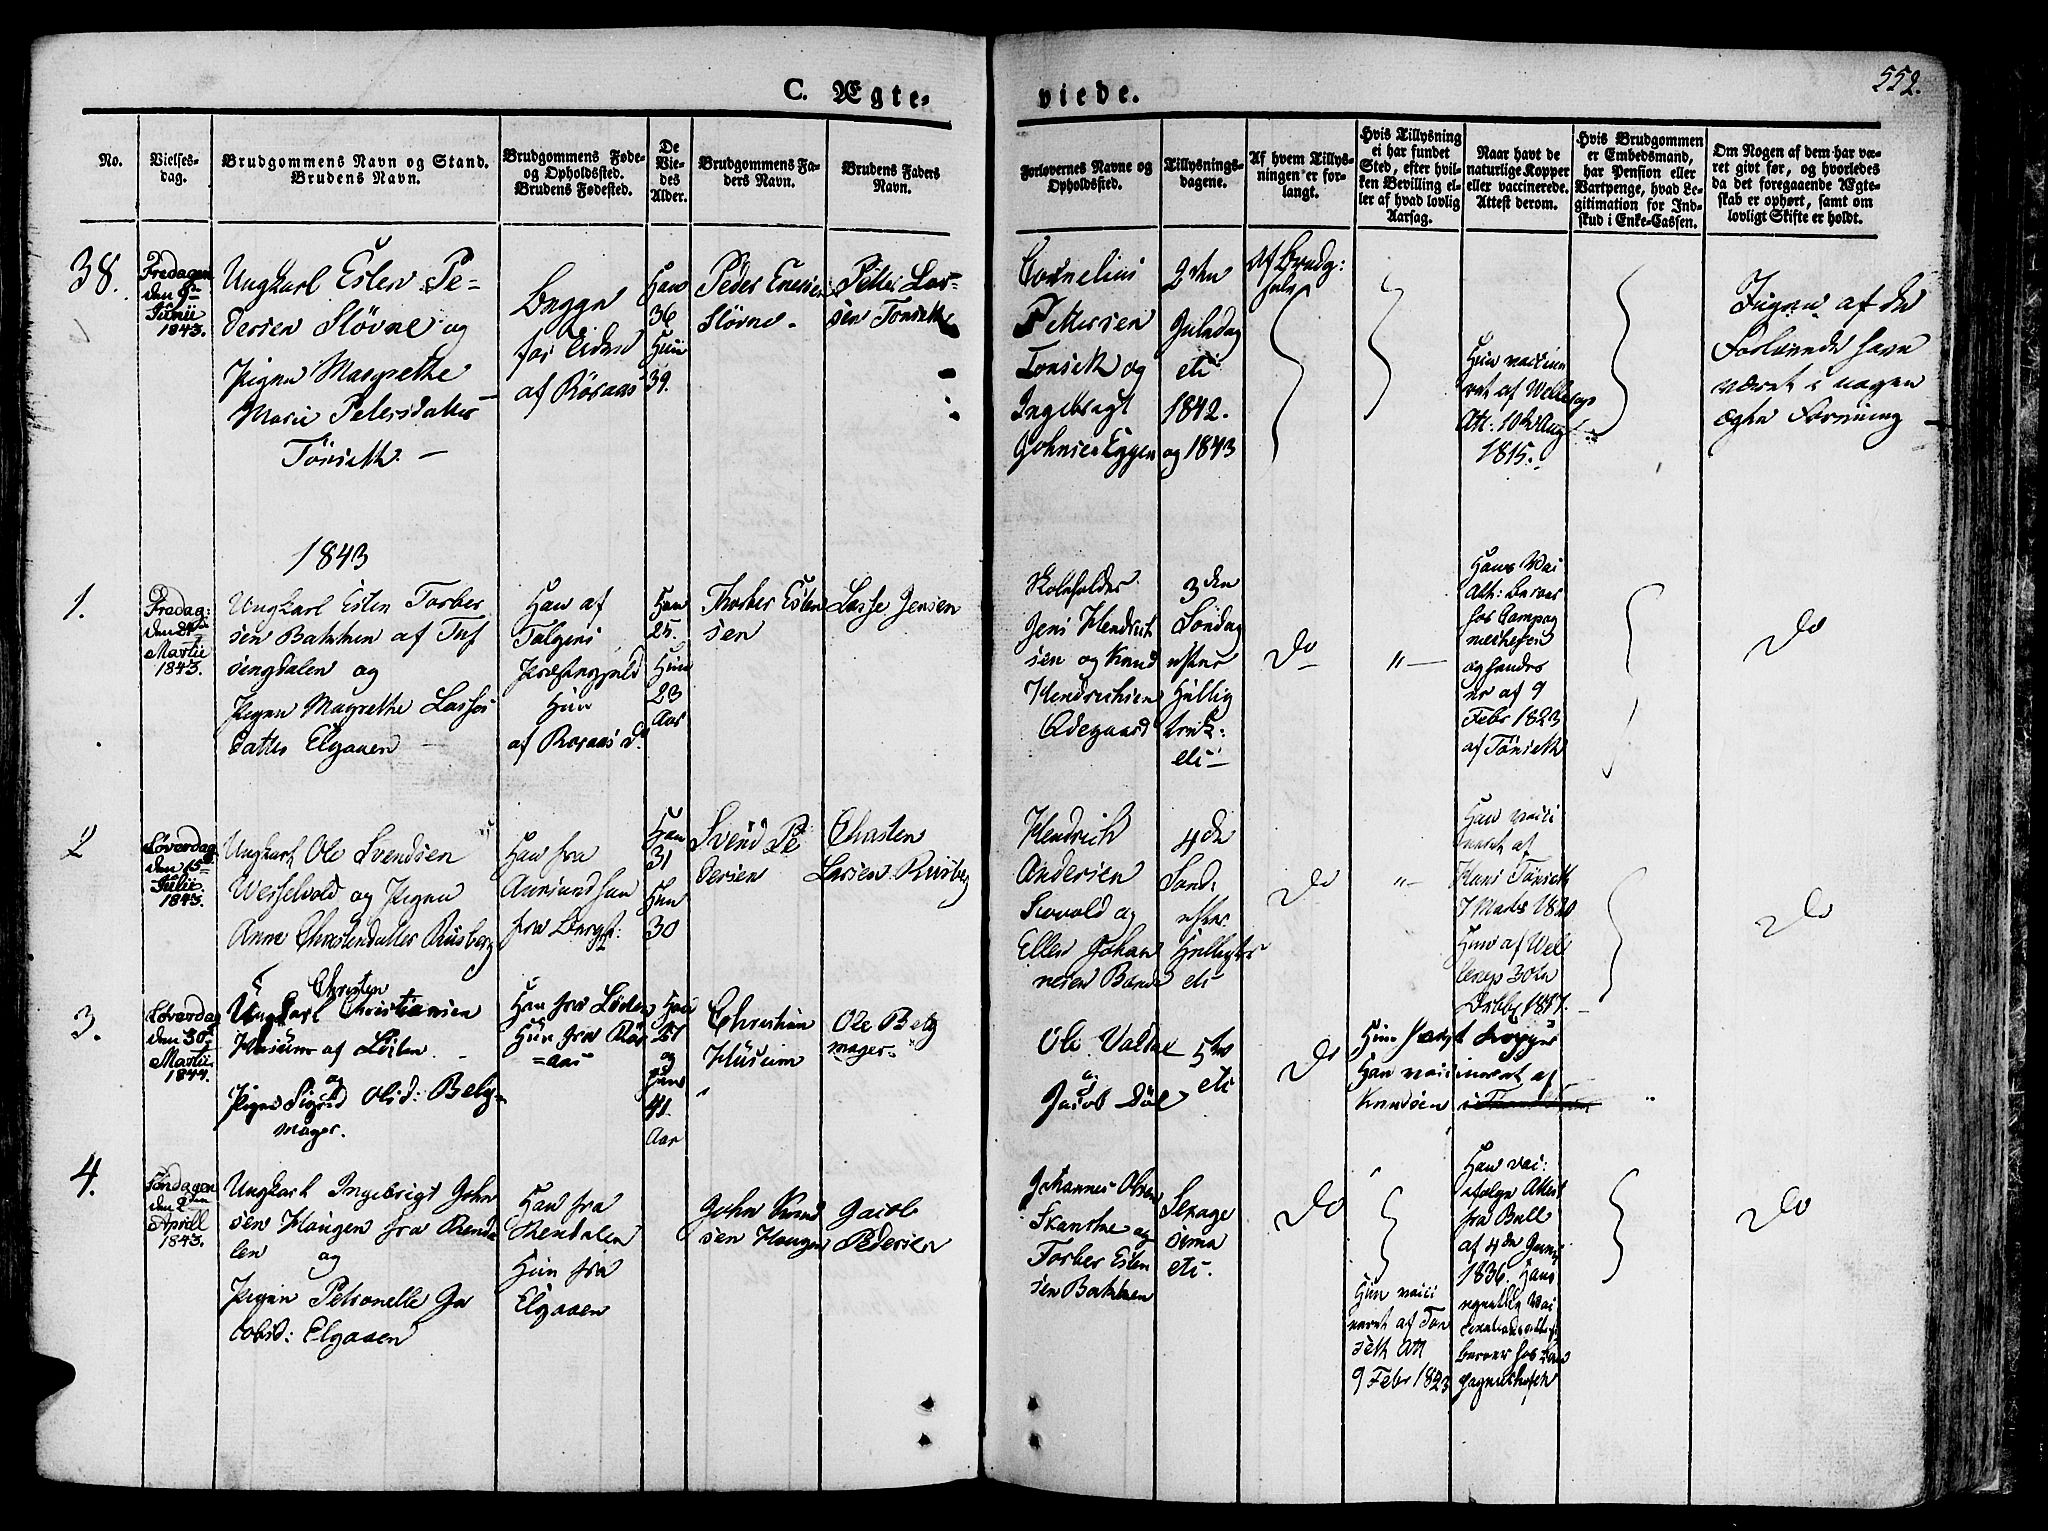 552.
C. Ægte-
viede.
No.
Vielses-
dag.
Brudgommens Navn og Stand.
Brudens Navn.
Brudgommens Føde-
og Opholdssted.
Brudens Fødested.
De
Vie-
des
Alder.
Brudgommens Fa-
ders Navn.
Brudens Faders
Navn.
Forlovernes Navne og
Opholdssted.
Tillysnings-
dagene.
Af hvem Tillys-
ningen er for-
langt.
Hvis Tillysning
ei har fundet
Sted, efter hvil-
ken Bevilling el-
ler af hvad lovlig
Aarsag.
Naar havt de
naturlige Kopper
eller vaccinerede.
Attest derom.
Hvis Brudgommen
er Embedsmand,
har Pension eller
Vartpenge, hvad Le-
gitimation for Ind-
skud i Enke-Cassen.
Om Nogen af dem har væ-
ret givt før, og hvorledes
da det foregaaende Ægte-
skab er ophørt, samt om
lovligt Skifte er holdt.
38.
Fredagen
den
Junii
1843.
Ungkarl Esten Pe-
dersen Sløvne og
Pigen Margrethe
Marie Petersdatter
Tønseth. -
Begge
føs
af Röraas
Han
36
Hun
39.
Peder Enersen
Sløvne.
Petter Lar-
sen Tønseth
Cornelius
Pettersen
Tonseth og
Ingebrigt
Johnsen Eggen
2den
Juledag
etc
1842.
og 1843
af Brudg:
Hun vaccine
ret af Wellesep
Att: 10d Aug
1815.
Ingen af de
Forlovede have
været i nogen
ægte Forening
1843
1.
Fredag:
den 24
Martii
1843.
Ungkarl Esten Torber
sen Bakken af Tuf
singdalen og
Pigen Magrethe Lasses
datter Elgaaen
Han af
Tolgens
Præstegjeld
Hun
af Røraas d.
Han
25.
Hun
23
Aar
Thorber Esten
sen
Lasse Jensen
Skoleholder
Jens Hendrich
sen og Knud
Hendrichsen
Ødegaard
3den
Søndag
efter
Hellig
trek:
etc
Do
"
Hans Vac
Atth: beroer
hos Compag
niechefen
og hendes
er af 9
Febr 1823
af Tönseth
Do
2
Løverdag
den 15
Julii
1843.
Ungkarl Ole Svendsen
Wesselvold og Pigen
Anne Chrestendatter Rusberg
Han fra
Aursund hun
fra Bergst:
Han
31
Hun
30
Svend Pe
dersen
Chresten
Larsen Rusberg
Hendrich
Andersen
og
Ellen Johan
nesen
4de
Sönd:
efter
Helligtr
etc
Do
"
Han vacci
neret af
Hans Tönseth
7 Marts 1820
Hun af Wel
lesep 30te
Octbr 1817.
Do
3.
Løverdag
den 30
Martii
1844.
Christen
Ungkarl Christiansen
Husum af Løiten
og
Pigen Sigrid Olsd: Belg-
mager.
Han fra Løiten
Hun fra Rör
=aas
Han
21
og
hun
41.
Aar
Christian
Husum
Ole Belg
mager
Ole Valset
og
Jacob Döl
5te
etc
Do
Hun havt kopper
Han vaccineret af
Knudsen
"
4.
Söndagen
den 2den
Aprill
1843.
Ungkarl Ingebrigt John
sen Haugen fra Renda
len og
Pigen Petronelle Ja
cobsd: Elgaaen
Han fra
Rendalen
Hun fra
Elgaaen
John Knud
sen Haugen
Jacob
Pedersen
Johannes Olsen
Skanske og
Torber Esten
sen Bakken
Sexage
sima
etc.
Do
Hun vacci
neret af Tön
seth Att
9 Febr 1823
Han vac:
ifølge Attest
fra Bull
af 4de Juni
1836. Hans
egentlig Vac
beroer hos Com
pagniechefen
Do